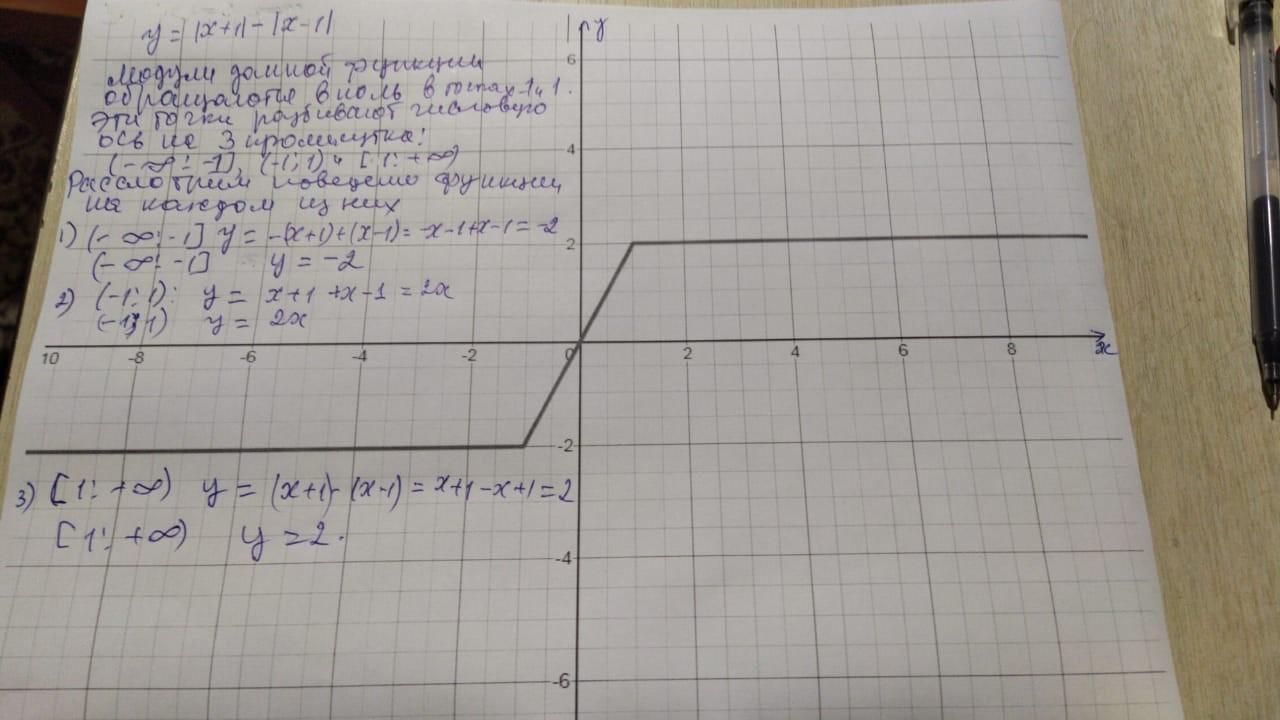 y = |x+1| - |x-1|
Модули данной функции
обращаются в ноль в точках -1 и 1.
Эти точки разбивают числовую
ось на 3 промежутка:
(-∞; -1], (-1; 1) и [1; +∞)
Рассмотрим поведение функции
на каждом из них
1) (-∞; -1] y = -(x+1)+(x-1) = -x-1+x-1 = -2
(-∞; -1] y = -2
2) (-1; 1): y = x+1+x-1 = 2x
(-1; 1) y = 2x
3) [1; +∞) y = (x+1)-(x-1) = x+1-x+1 = 2
[1; +∞) y = 2.
y
6
4
2
10 -8 -6 -4 -2 0 2 4 6 8 x
-2
-4
-6